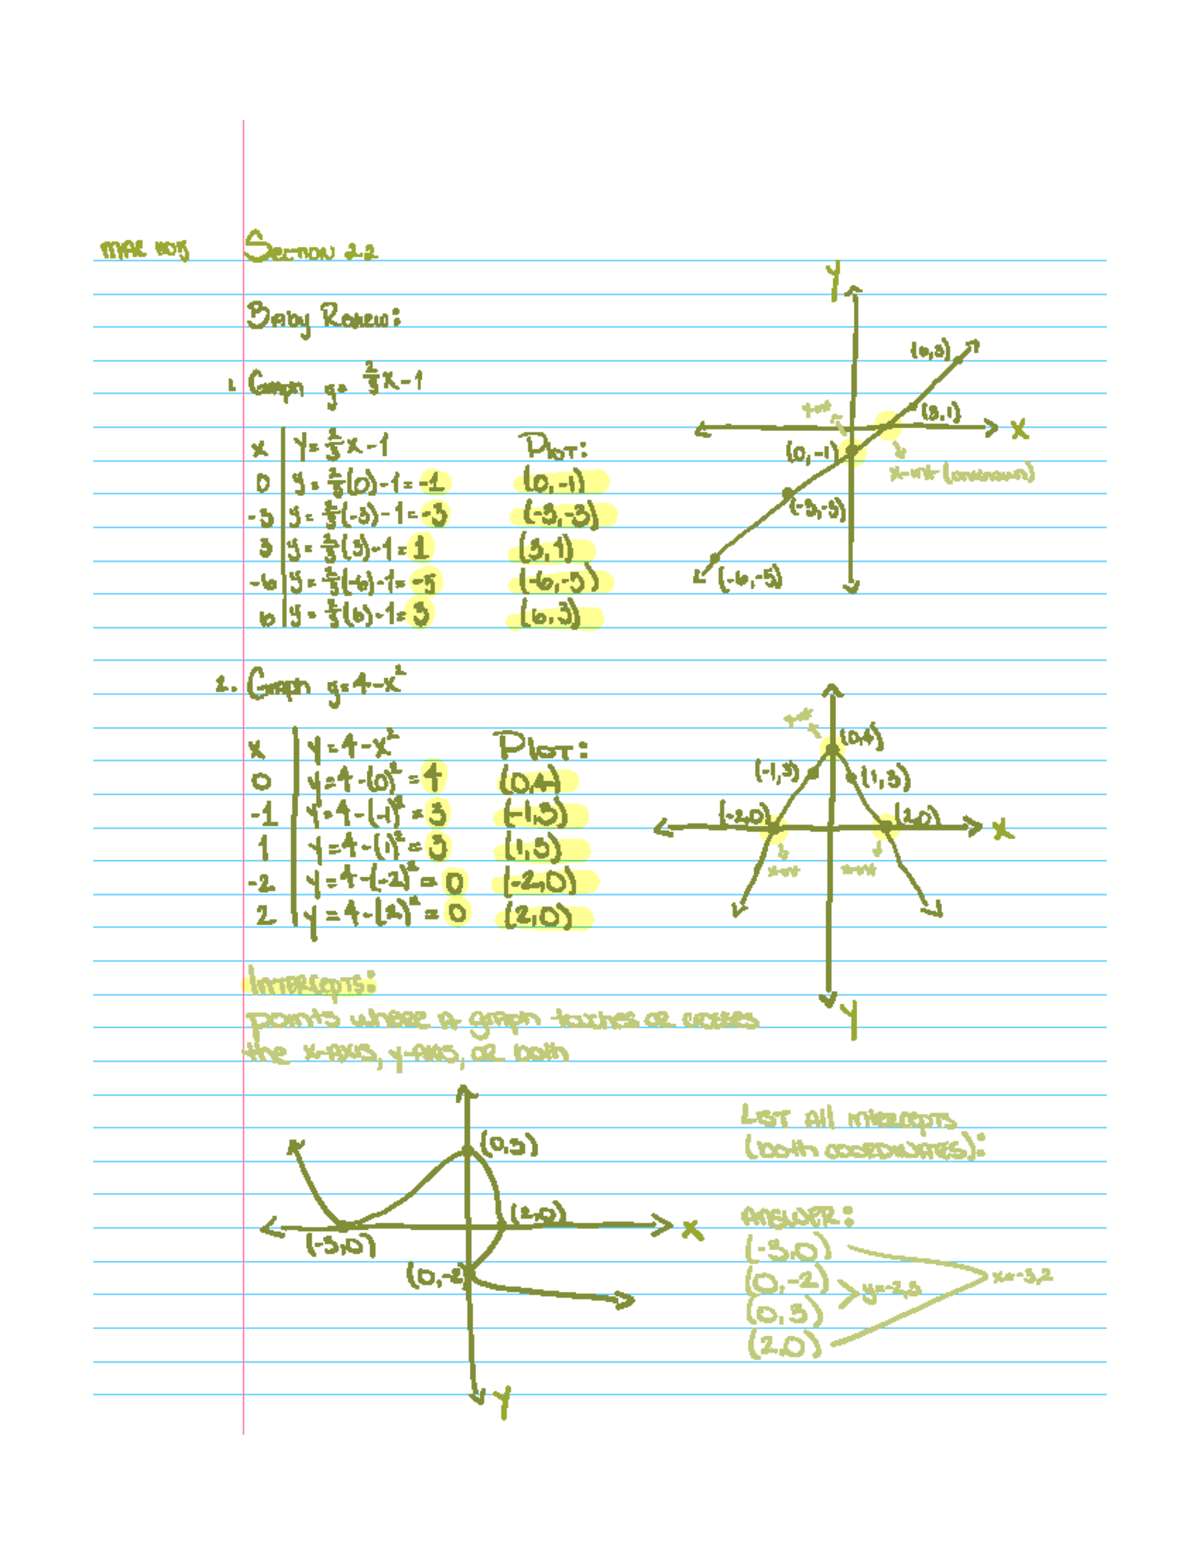 MAC 1105
Section 2.2
Baby Review:
1. Graph y= 2/3x-1
x | y= 2/3x-1 Plot:
0 | y= 2/3(0)-1=-1 (0,-1)
-3 | y= 2/3(-3)-1=-3 (-3,-3)
3 | y= 2/3(3)-1=1 (3,1)
-6 | y= 2/3(-6)-1=-5 (-6,-5)
6 | y= 2/3(6)-1=3 (6,3)
Y
(6,3)
y-int
(3,1)
X
(0,-1)
x-int (unknown)
(-3,-3)
(-6,-5)
2. Graph y=4-x²
x | y=4-x² Plot:
0 | y=4-(0)²=4 (0,4)
-1 | y=4-(-1)²=3 (-1,3)
1 | y=4-(1)²=3 (1,3)
-2 | y=4-(-2)²=0 (-2,0)
2 | y=4-(2)²=0 (2,0)
y-int
(0,4)
(-1,3) (1,3)
(-2,0) (2,0)
X
x-int x-int
Y
Intercepts:
points where a graph touches or crosses
the x-axis, y-axis, or both
(0,3)
(2,0)
X
(-3,0)
(0,-2)
Y
List all intercepts
(both coordinates):
Answer:
(-3,0)
(0,-2)
(0,3)
(2,0)
y=-2,3
x=-3,2